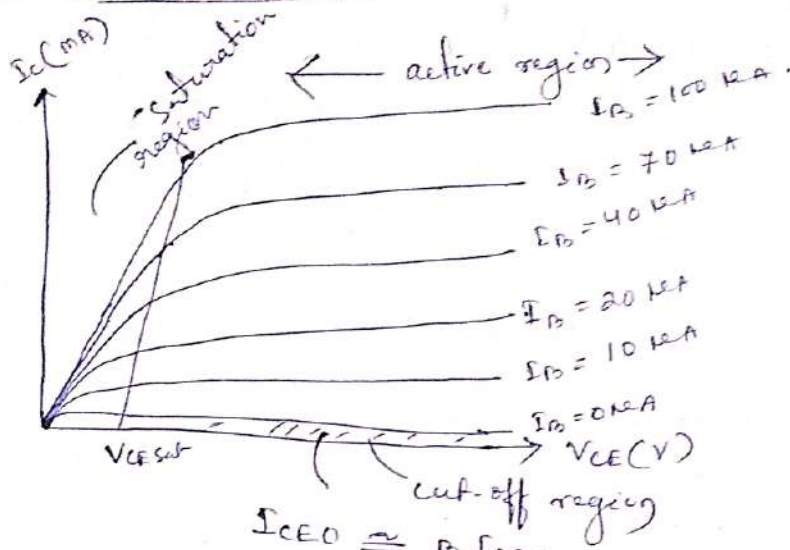 Ic (mA)
saturation
region
← active region →
IB = 100 μA.
IB = 70 μA
IB = 40 μA
IB = 20 μA
IB = 10 μA
IB = 0 μA
VCE sat
VCE (V)
cut-off region
ICEO ≅ β